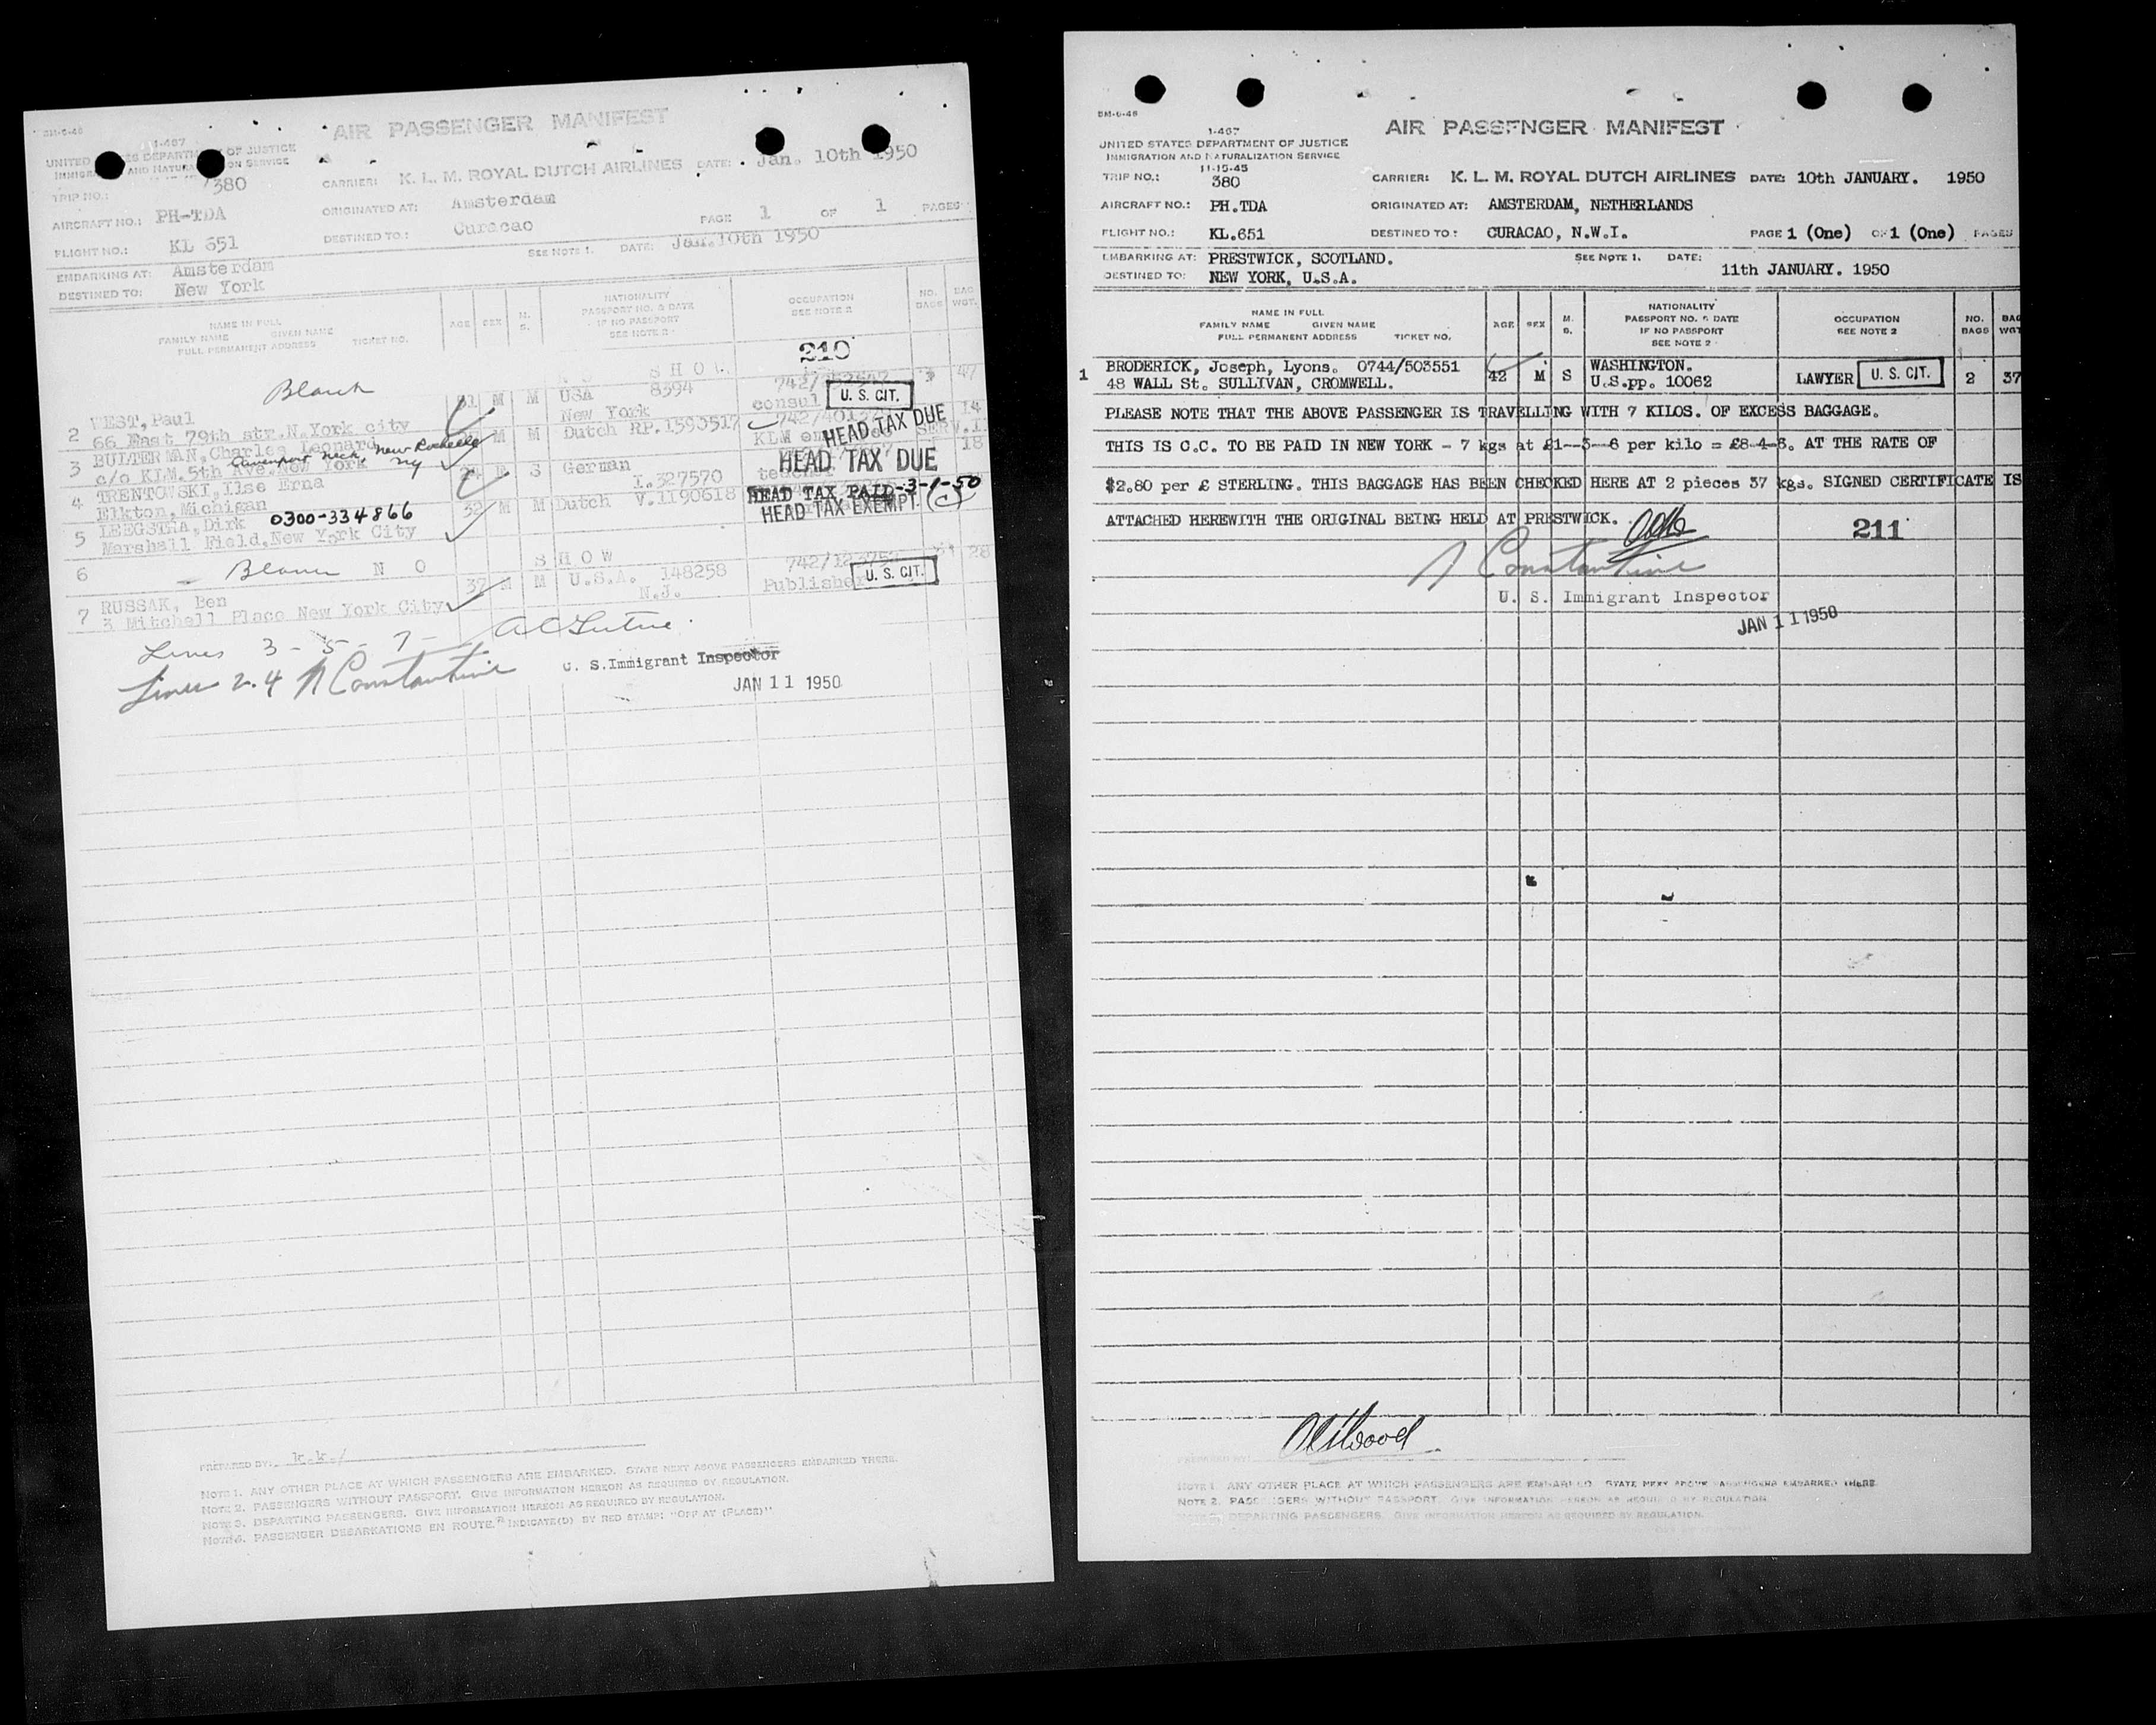 BM-6-46
AIR PASSENGER MANIFEST
1-467
UNITED STATES DEPARTMENT OF JUSTICE
IMMIGRATION AND NATURALIZATION SERVICE
TRIP NO.: 380
CARRIER: K. L. M. ROYAL DUTCH AIRLINES DATE: Jan. 10th 1950
AIRCRAFT NO.: PH-TDA
ORIGINATED AT: Amsterdam
PAGE 1 OF 1 PAGES
FLIGHT NO.: KL 651
DESTINED TO: Curacao
EMBARKING AT: Amsterdam
SEE NOTE 1. DATE: Jan.10th 1950
DESTINED TO: New York
NAME IN FULL
FAMILY NAME GIVEN NAME
FULL PERMANENT ADDRESS TICKET NO.
AGE SEX M. S.
NATIONALITY
PASSPORT NO. & DATE
IF NO PASSPORT
SEE NOTE 2
OCCUPATION
SEE NOTE 2
NO. BAGS
BAG WGT.
210
Blank S H O
2 WEST, Paul M M USA 8394 742/ 47
66 East 79th str.N.York city New York consul U. S. CIT.
3 BULTERMAN, Charles Leonard M M Dutch RP.1593517 14
c/o KLM.5th Ave.New York KLM HEAD TAX DUE
Davenport Neck, New Rochelle NY
4 TRENTOWSKI, Ilse Erna S German 18
Elkton, Michigan I.327570 HEAD TAX DUE
5 LEEGSTRA, Dirk 0300-334866 32 M M Dutch V.1190618 HEAD TAX PAID-3-1-50
Marshall Field, New York City HEAD TAX EXEMPT (C)
6 N O S H O W
7 RUSSAK, Ben 37 M M U.S.A. 148258 28
3 Mitchell Place New York City N.J. Publisher U. S. CIT.
Lines 3 - 5 - 7 -
Lines 2.4 N Constantine
U. S. Immigrant Inspector
JAN 11 1950
PREPARED BY: k.k./
NOTE 1. ANY OTHER PLACE AT WHICH PASSENGERS ARE EMBARKED. STATE NEXT ABOVE PASSENGERS EMBARKED THERE.
NOTE 2. PASSENGERS WITHOUT PASSPORT. GIVE INFORMATION HEREON AS REQUIRED BY REGULATION.
NOTE 3. DEPARTING PASSENGERS. GIVE INFORMATION HEREON AS REQUIRED BY REGULATION.
NOTE 4. PASSENGER DEBARKATIONS EN ROUTE. INDICATE(D) BY RED STAMP: "OFF AT (PLACE)"
BM-6-46
AIR PASSENGER MANIFEST
1-467
UNITED STATES DEPARTMENT OF JUSTICE
IMMIGRATION AND NATURALIZATION SERVICE
11-15-45
TRIP NO.: 380
CARRIER: K. L. M. ROYAL DUTCH AIRLINES DATE: 10th JANUARY. 1950
AIRCRAFT NO.: PH.TDA
ORIGINATED AT: AMSTERDAM, NETHERLANDS
FLIGHT NO.: KL.651
DESTINED TO: CURACAO, N.W.I.
PAGE 1 (One) OF 1 (One) PAGES
EMBARKING AT: PRESTWICK, SCOTLAND.
SEE NOTE 1. DATE: 11th JANUARY. 1950
DESTINED TO: NEW YORK, U.S.A.
NAME IN FULL
FAMILY NAME GIVEN NAME
FULL PERMANENT ADDRESS TICKET NO.
AGE SEX M. S.
NATIONALITY
PASSPORT NO. & DATE
IF NO PASSPORT
SEE NOTE 2
OCCUPATION
SEE NOTE 2
NO. BAGS
BAG WGT
1 BRODERICK, Joseph, Lyons. 0744/503551 42 M S WASHINGTON.
48 WALL St. SULLIVAN, CROMWELL. U.S.pp. 10062 LAWYER U. S. CIT. 2 37
PLEASE NOTE THAT THE ABOVE PASSENGER IS TRAVELLING WITH 7 KILOS. OF EXCESS BAGGAGE.
THIS IS C.C. TO BE PAID IN NEW YORK - 7 kgs at £1--3--6 per kilo = £8-4-6. AT THE RATE OF
$2.80 per £ STERLING. THIS BAGGAGE HAS BEEN CHECKED HERE AT 2 pieces 37 kgs. SIGNED CERTIFICATE IS
ATTACHED HEREWITH THE ORIGINAL BEING HELD AT PRESTWICK.
211
N Constantine
U. S. Immigrant Inspector
JAN 11 1950
PREPARED BY:
NOTE 1. ANY OTHER PLACE AT WHICH PASSENGERS ARE EMBARKED. STATE NEXT ABOVE PASSENGERS EMBARKED THERE.
NOTE 2. PASSENGERS WITHOUT PASSPORT. GIVE INFORMATION HEREON AS REQUIRED BY REGULATION.
DEPARTING PASSENGERS. GIVE INFORMATION HEREON AS REQUIRED BY REGULATION.